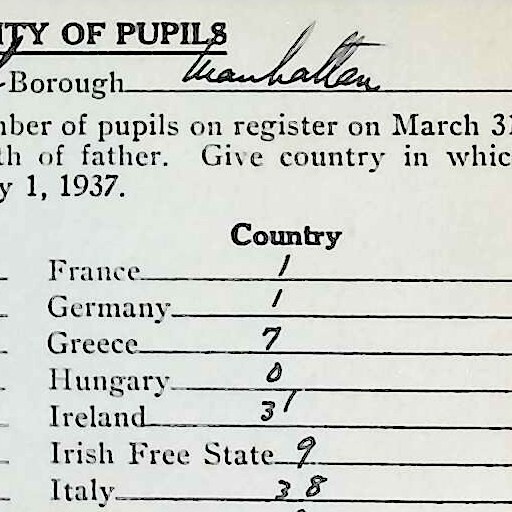 ITY OF PUPILS
Borough Manhattan
ber of pupils on register on March 31
th of father. Give country in whic
y 1, 1937.
Country
France 1
Germany 1
Greece 7
Hungary 0
Ireland 31
Irish Free State 9
Italy 38